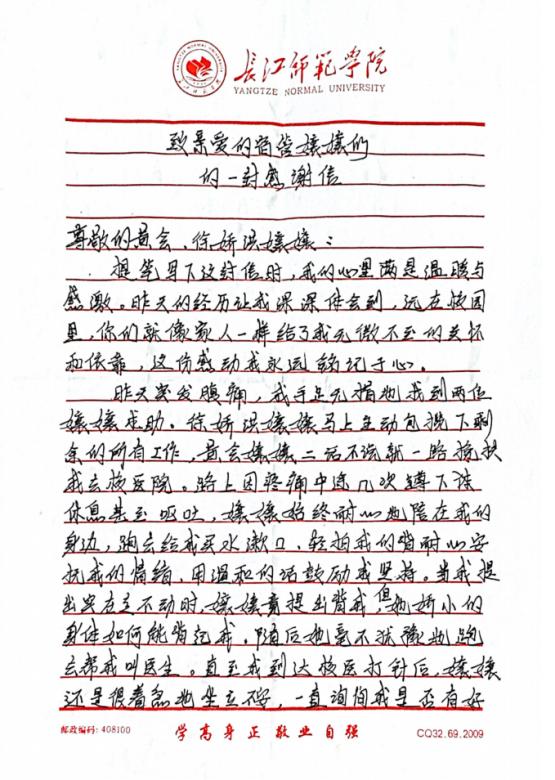 长江师范学院
YANGTZE NORMAL UNIVERSITY
致亲爱的宿管嬢嬢们
的一封感谢信
尊敬的黄会、徐娇洪嬢嬢：
提笔写下这封信时，我的心里满是温暖与
感激。昨天的经历让我深深体会到，远在校园
里，你们就像家人一样给了我无微不至的关怀
和依靠，这份感动我永远铭记于心。
昨天突发腹痛，我手足无措地找到两位
嬢嬢求助。徐娇洪嬢嬢马上主动包揽下剩
余的所有工作，黄会嬢嬢二话不说就一路搀扶
我去校医院。路上因疼痛中途几次蹲下休
息甚至呕吐，嬢嬢始终耐心地陪在我的
身边，跑去给我买水漱口，轻拍我的背耐心安
抚我的情绪，用温和的话鼓励我坚持。当我提
出实在走不动时，嬢嬢竟提出背我，但她娇小的
身体如何能背起我。随后她毫不犹豫地跑
去帮我叫医生。直至我到达校医打针后，嬢嬢
还是很着急地坐立不安，一直询问我是否有好
邮政编码：408100
学高身正 敬业自强
CQ32.69.2009